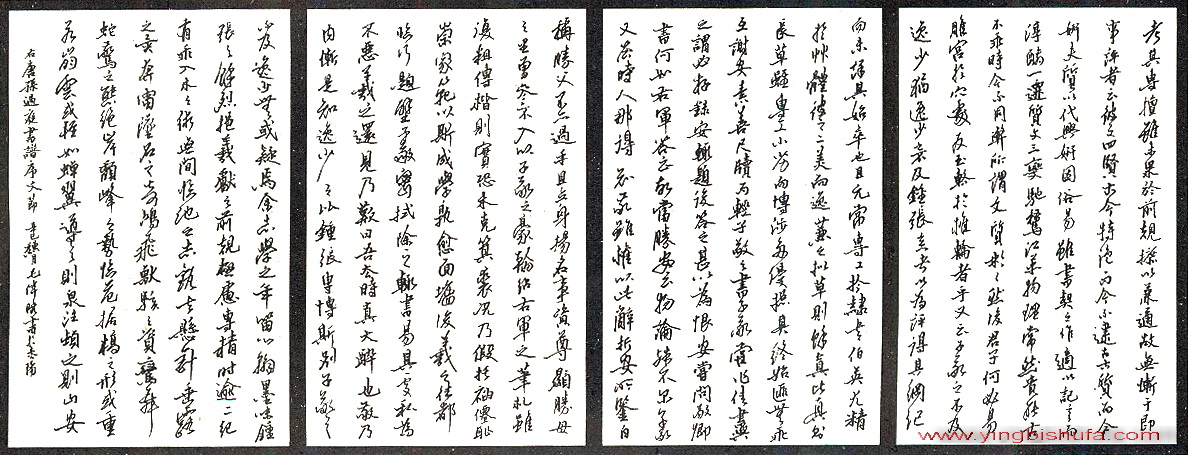 考其專擅雖未果於前規摭以兼通故無慚于即
事評者云彼之四賢古今特絕而今不逮古古質而今
妍夫質以代興妍因俗易雖書契之作適以記言而
淳醨一遷質文三變馳騖沿革物理常然貴能古
不乖時今不同弊所謂文質彬彬然後君子何必易
雕宮於穴處反玉輅於椎輪者乎又云子敬之不及
逸少猶逸少之不及鍾張意者以為評得其綱紀
而未詳其始卒也且元常專工於隸書伯英尤精
於艸體彼之二美而逸少兼之擬草則餘真比真則
長草雖專工小劣而博涉多優摠其終始匪無乖
互謝安素善尺牘而輕子敬之書子敬嘗作佳書與
之謂必存錄安輒題後答之甚以為恨安嘗問敬卿
書何如右軍答云故當勝安云物論殊不爾子敬
又答時人那得知敬雖權以此辭折安所鑒自
稱勝父不亦過乎且立身揚名事資尊顯勝母
之里曾參不入以子敬之豪翰紹右軍之筆札雖
復粗傳楷則實恐未克箕裘況乃假託神僊恥
崇家範以斯成學孰愈面牆後羲之往都
臨行題壁子敬密拭除之輒書易其處私為
不惡羲之還見乃歎曰吾去時真大醉也敬乃
內慚是知逸少之比鍾張則專博斯別子敬之
不及逸少無或疑焉余志學之年留心翰墨味鍾
張之餘烈挹羲獻之前規極慮專精時逾二紀
有乖入木之術無間臨池之志觀夫懸針垂露
之異奔雷墜石之奇鴻飛獸駭之資鸞舞
蛇驚之態絕岸頹峰之勢臨危據槁之形或重
若崩雲或輕如蟬翼導之則泉注頓之則山安
右唐孫過庭書譜序文節 辛巳穐月毛 書於
www.yingbishufa.com